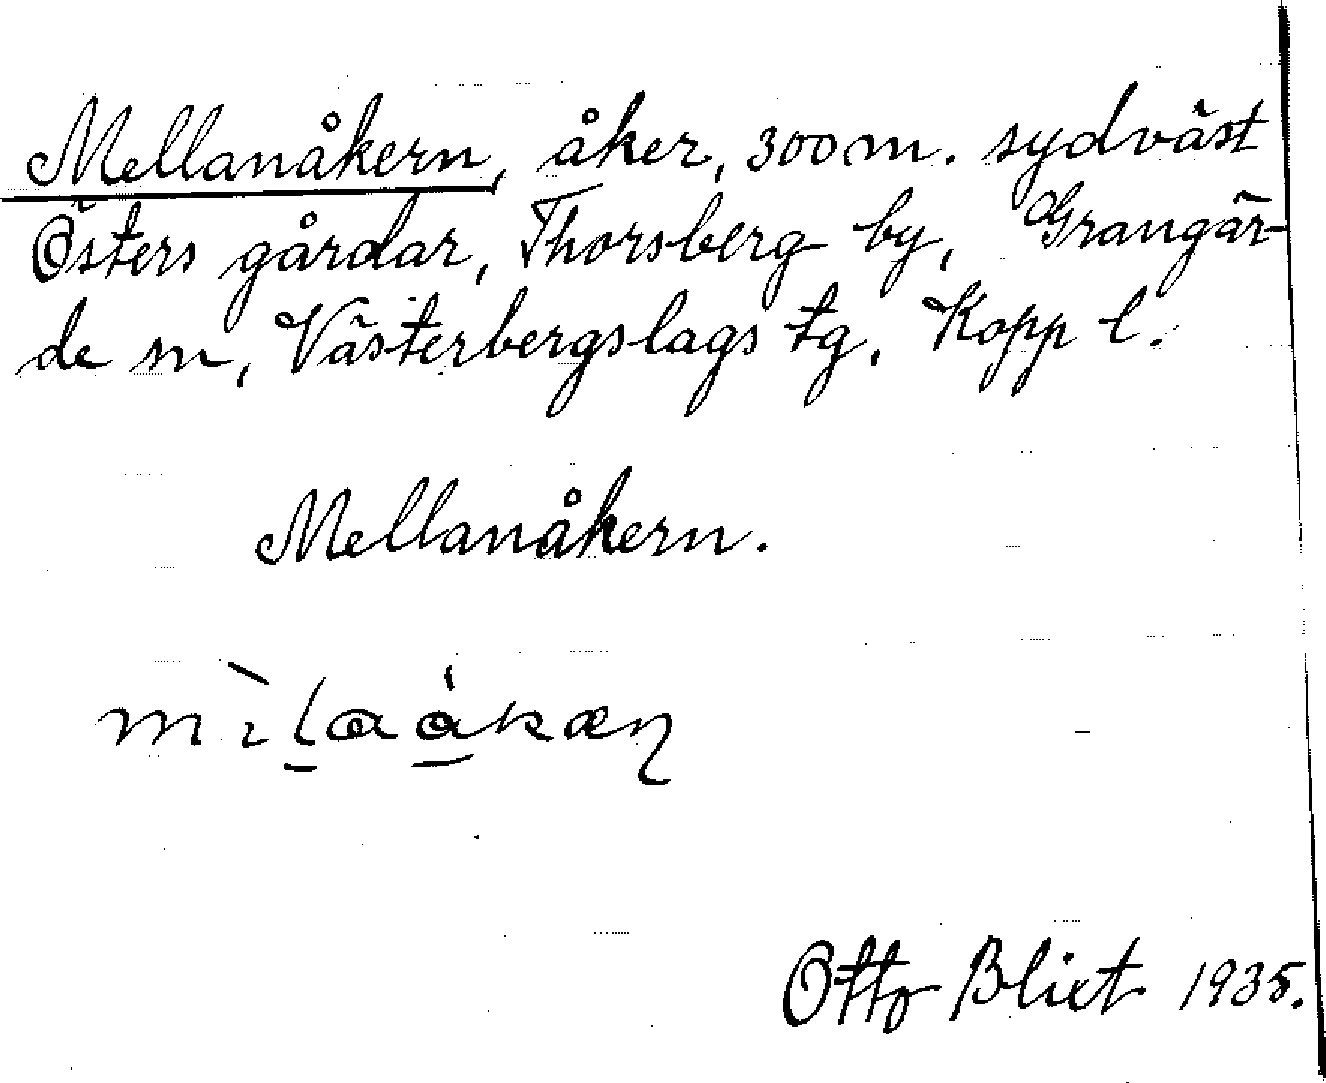 Mellanåkern, åker, 300 m. sydväst
Östers gårdar, Thorsberg by, Grangär-
de sn, Västerbergslags tg, Kopp l.
Mellanåkern.
Otto Blixt 1935.